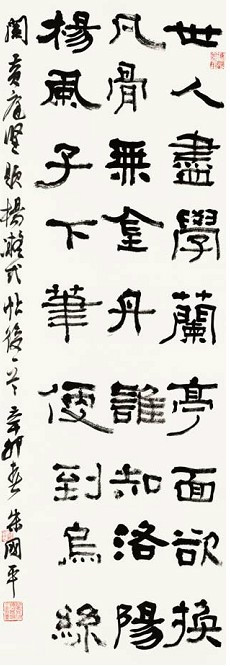 世人盡學蘭亭面欲換
凡骨無金丹誰知洛陽
楊風子下筆便到烏絲
闌 黃庭堅題楊凝式帖後一首 辛卯春 朱國平